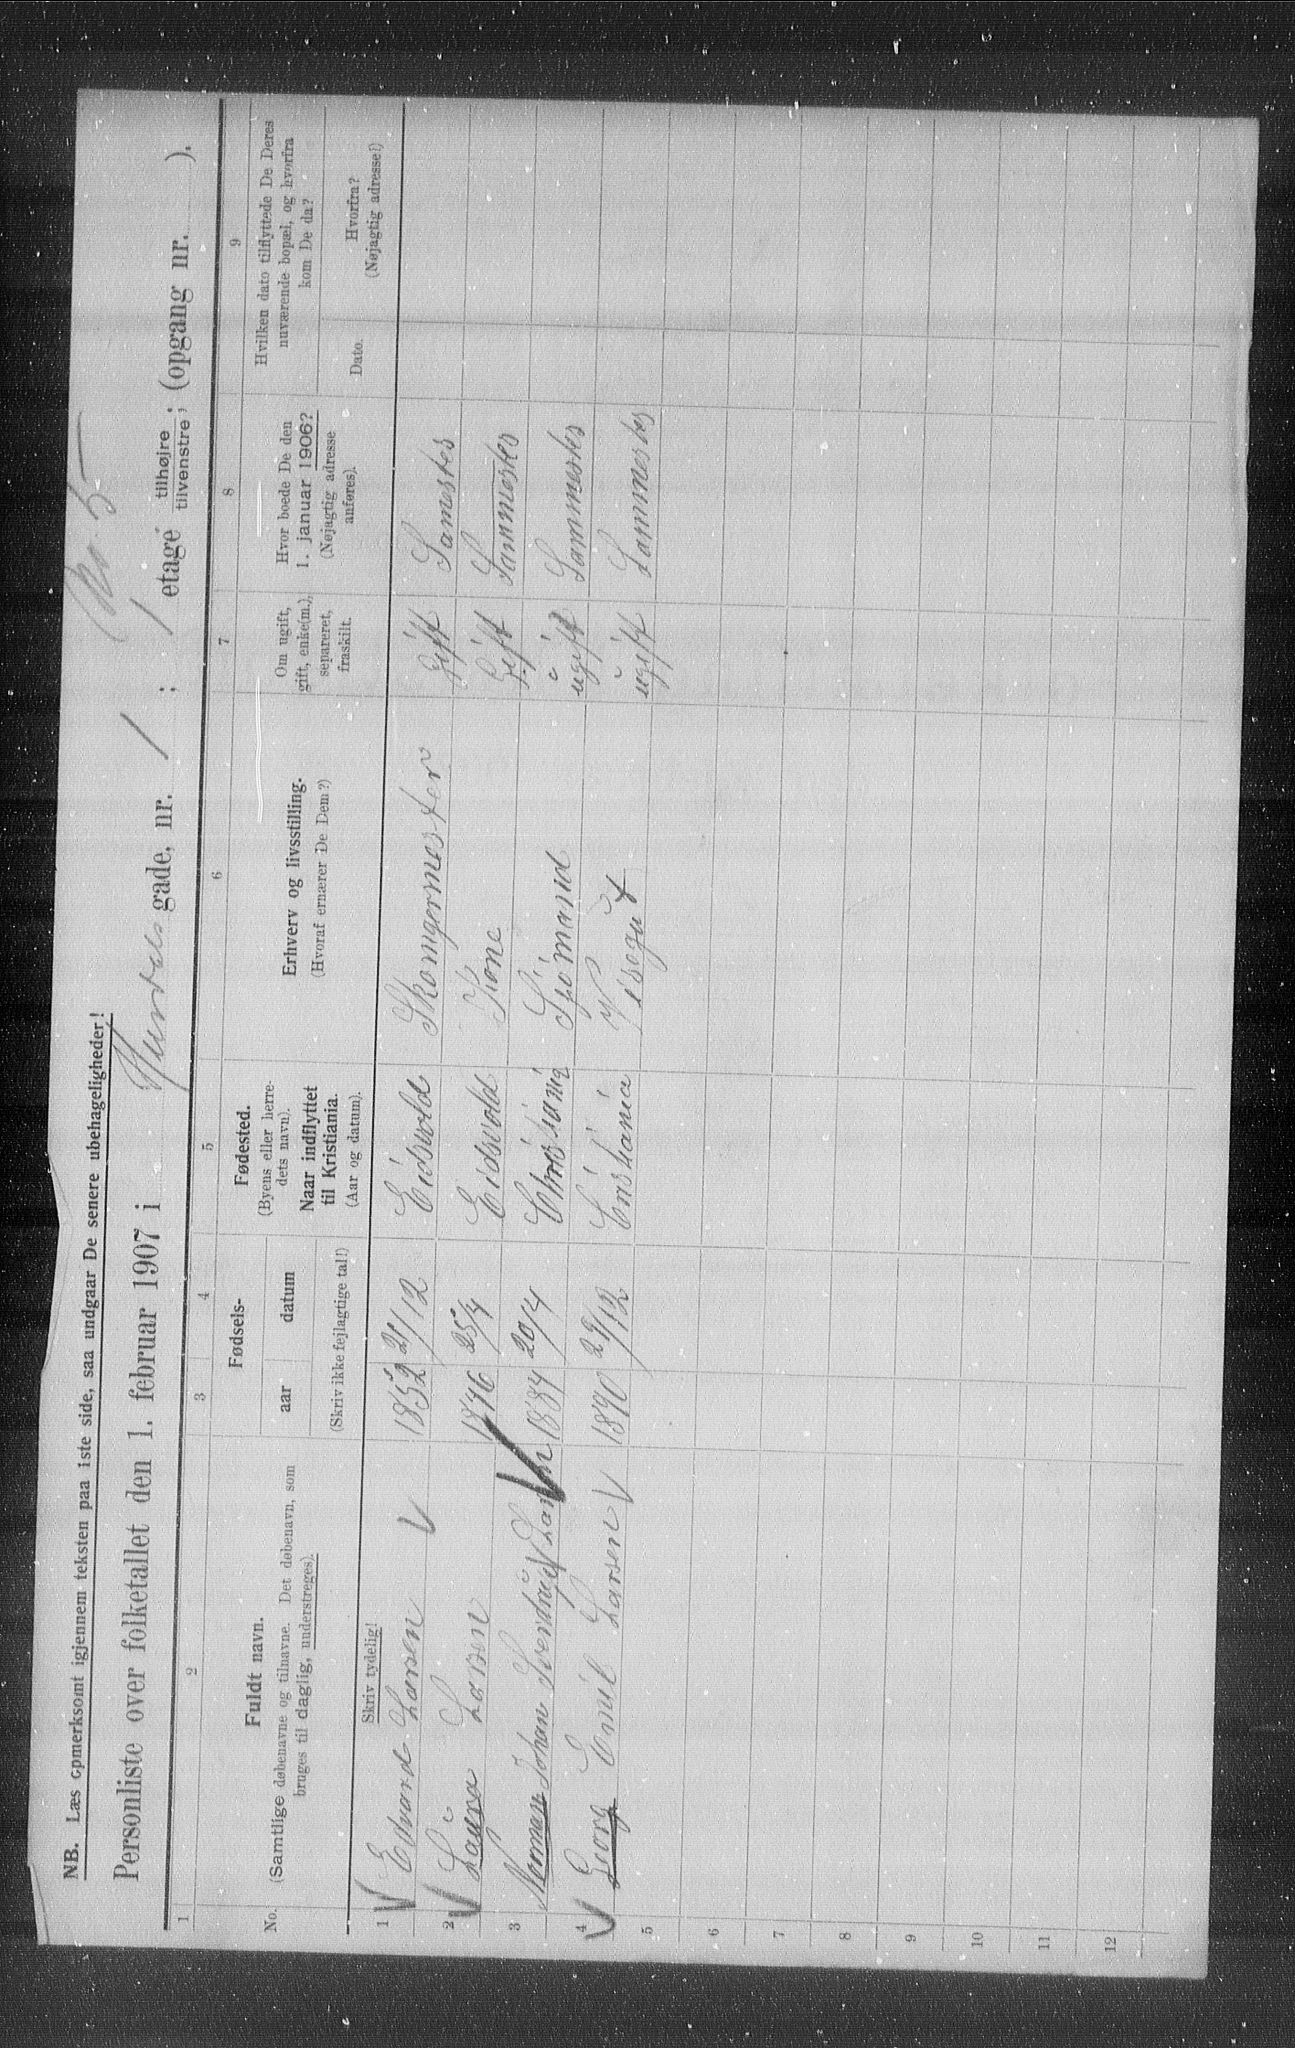 NB. Læs opmerksomt igjennem teksten paa 1ste side, saa undgaar De senere ubehageligheder!
No. 5
Personliste over folketallet den 1. februar 1907 i gade, nr. 1 ; 1 etage tilhøjre, tilvenstre, (opgang nr. ).
1 2 3 4 5 6 7 8 9
No. Fuldt navn. (Samtlige døbenavne og tilnavne. Det døbenavn, som bruges til daglig, understreges). Fødsels- aar datum Fødested. (Byens eller herredets navn). Naar indflyttet til Kristiania. (Aar og datum). Erhverv og livsstilling. (Hvoraf ernærer De Dem?) Om ugift, gift, enke(m.), separeret, fraskilt. Hvor boede De den 1. januar 1906? (Nøjagtig adresse anføres). Hvilken dato tilflyttede De Deres nuværende bopæl, og hvorfra kom De da?
Skriv tydelig! (Skriv ikke fejlagtige tal!) Dato. Hvorfra? (Nøjagtig adresse!)
1 Edvard Larsen 1852 21/12 Eidsvold Skomgermester Gift Samestes
2 Laura Larsen 25/4 Eidsvold Kone Gift Sammestes
3 Johan Larsen 1884 20/4 Christiania Sjömand ugift Sammestes
4 Georg Emil Larsen 1890 29/12 Cristiania Visegut ugift Sammestes
5
6
7
8
9
10
11
12